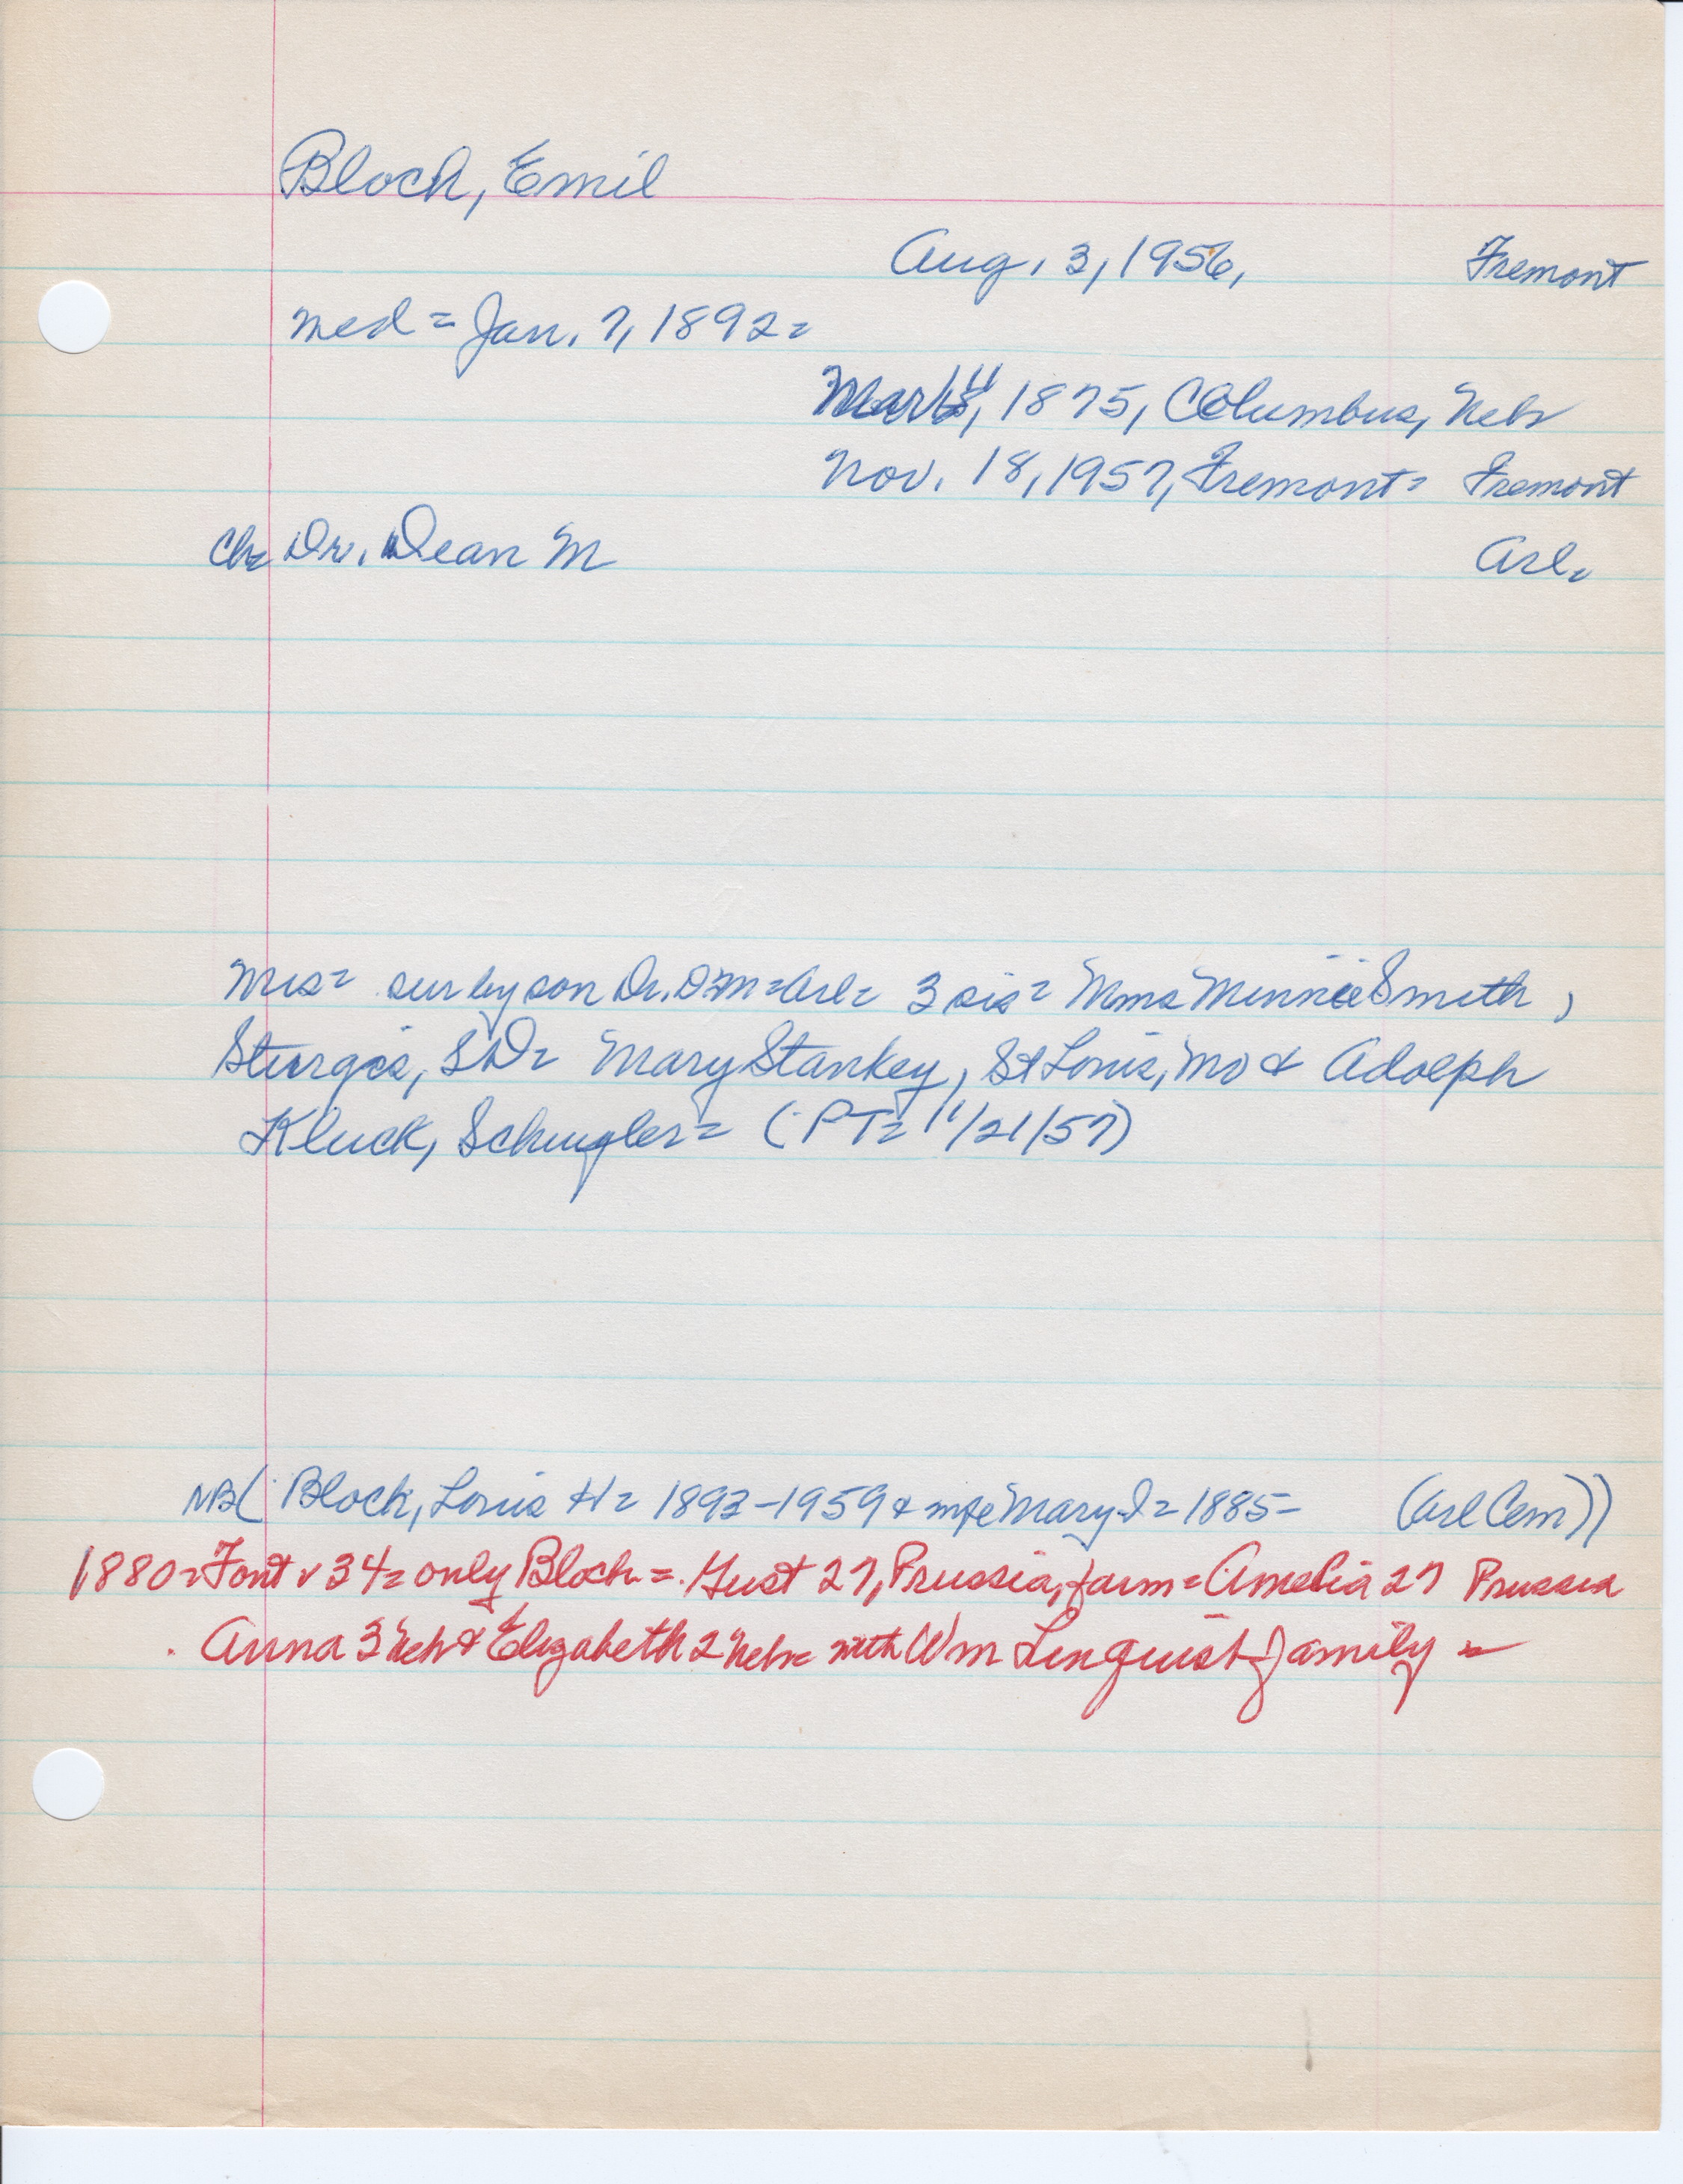 Bloch, Emil
Aug. 3, 1956, Fremont
med = Jan. 7, 1892 =
1875, Columbus, Nebr
Nov. 18, 1957, Fremont = Fremont
Ch= Dr. Dean M Arl=
Mrs= sur by son Dr. D M = Arl = 3 sis = Mms Minnie Smith,
Sturgis, SD= Mary Stankey, St Louis, Mo & Adolph
Kluck, Schuyler = (PT= 11/21/57)
NB( Block, Louis H = 1893-1959 & wife Mary I = 1885- (Arl Cem))
1880= Font v 34= only Bloch = Gust 27, Prussia, farm = Amelia 27 Prussia
Anna 3 Neb & Elizabeth 2 Neb= with Wm Linquist family =